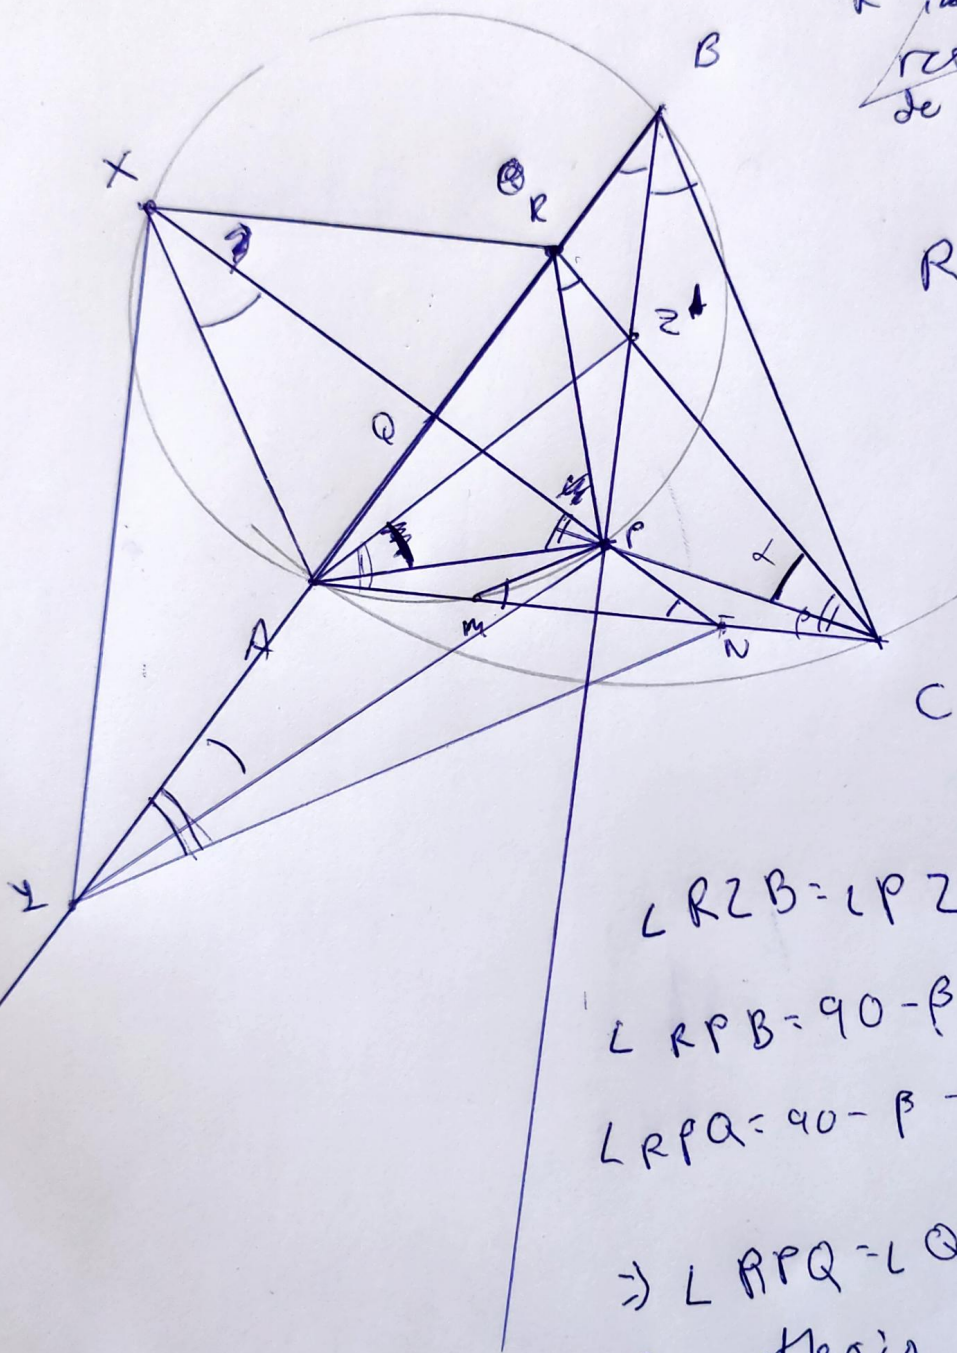 B
X
R
R
Z
Q
P
α
A
M
N
C
Y
∠RZB=∠PZ
∠RPB=90-β
∠RPQ=90-β-
⇒∠RPQ=∠Q